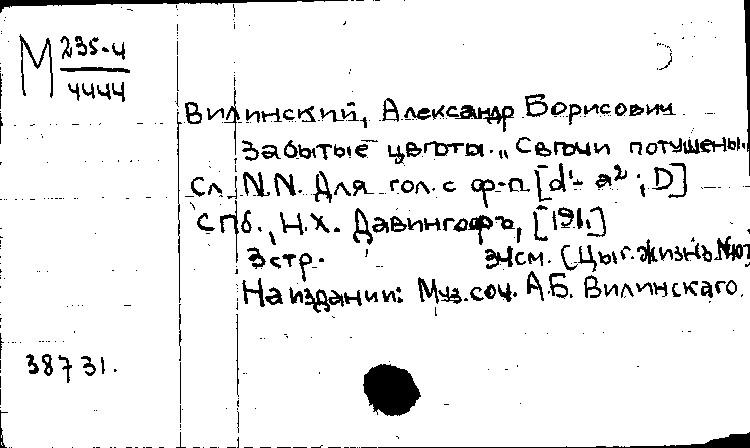 М 235-4
4444
Вилинский, Александр Борисович
Забытые цветы. „Свечи потушены..
Сл. N.N. Для гол. с ф-п. [d¹- a² ; D]
СПб., Н.Х. Давингофъ, [191.]
3 стр. 34см. (Цыг. жизнь. №107
На издании: Муз. соч. А.Б. Вилинскаго.
38731.